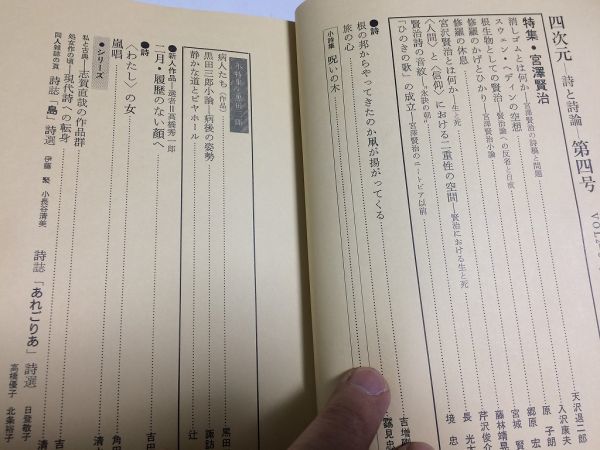 四次元 詩と詩論 第四号
特集・宮澤賢治
天沢退二郎
消しゴムとは何か―宮澤賢治の詩稿と問題
入沢康夫
スウェン・ヘディンの空想
原 子朗
根生物としての賢治―賢治論への反省と自戒
郷原 宏
修羅のかげとひかり―宮澤賢治小論
宮城 賢
修羅の休息
藤林靖晃
宮沢賢治とは何か―生と死
芹沢俊介
〈人間〉と〈信仰〉における二重性の空間―賢治における生と死
長 光太
賢治詩の音紋―"永訣の朝"
境 忠
「ひのきの歌」の成立―宮澤賢治のユートピア以前
●詩
根の邦からやってきたのか凧が揚がってくる
吉増
旅の心
鶴見忠
小詩集 呪いの木
小特集・黒田三郎
病人たち〈作品〉
黒田
黒田三郎小論―病後の姿勢
諏訪
静かな道とビヤホール
辻
●新人作品―選者＝高橋秀一郎
二月・履歴のない顔へ
吉田
●詩
〈わたし〉の女
角田
嵐唱
清水
●シリーズ
私と古典―志賀直哉の作品群
吉
処女作の頃―現代詩への転身
清
同人雑誌の頁 詩誌「島」詩選 伊藤 聚 小長谷清美
詩誌「あれごりあ」詩選 日登敬子 高橋優子 北条裕子